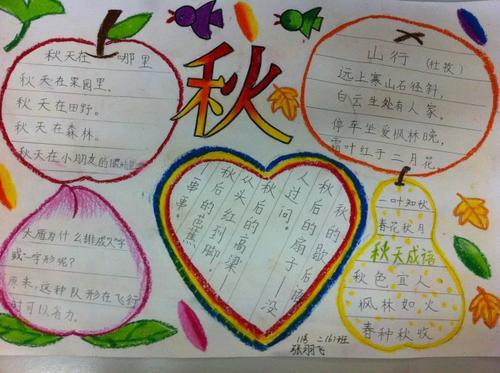 秋
秋天在 哪里
秋天在果园里，
秋天在田野。
秋天在森林。
秋天在小朋友的
山行 (杜牧)
远上寒山石径斜，
白云生处有人家，
停车坐爱枫林晚，
霜叶红于二月花
大雁为什么排成人字
或一字形呢？
原来，这种队形在飞行
时可以省力。
秋的歇后语
秋后的扇子——没
人过问。
秋后的高粱——
从头红到脚。
秋后的芭蕉——
一串串。
一叶知秋
春花秋月
秋天成语
秋色宜人
枫林如火
春种秋收
二(6)班
张翔飞